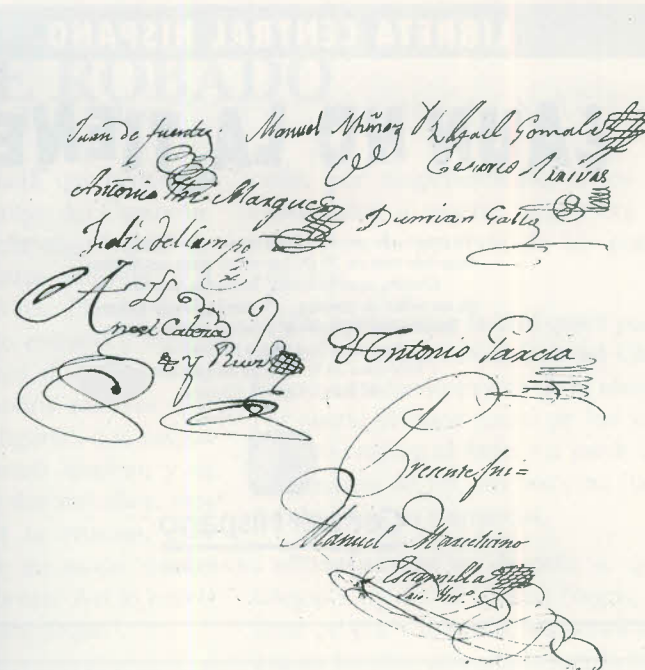 Juan de fuentes. Manuel Muñoz Rafael Gonzalez
Cesareo Arrivas
Antonio Mz Marquez
Damian Gallo
Felix del Campo
Angel Cabeza
y Rivero
Antonio Garcia
Presente fui =
Manuel Marcelino
Escamilla